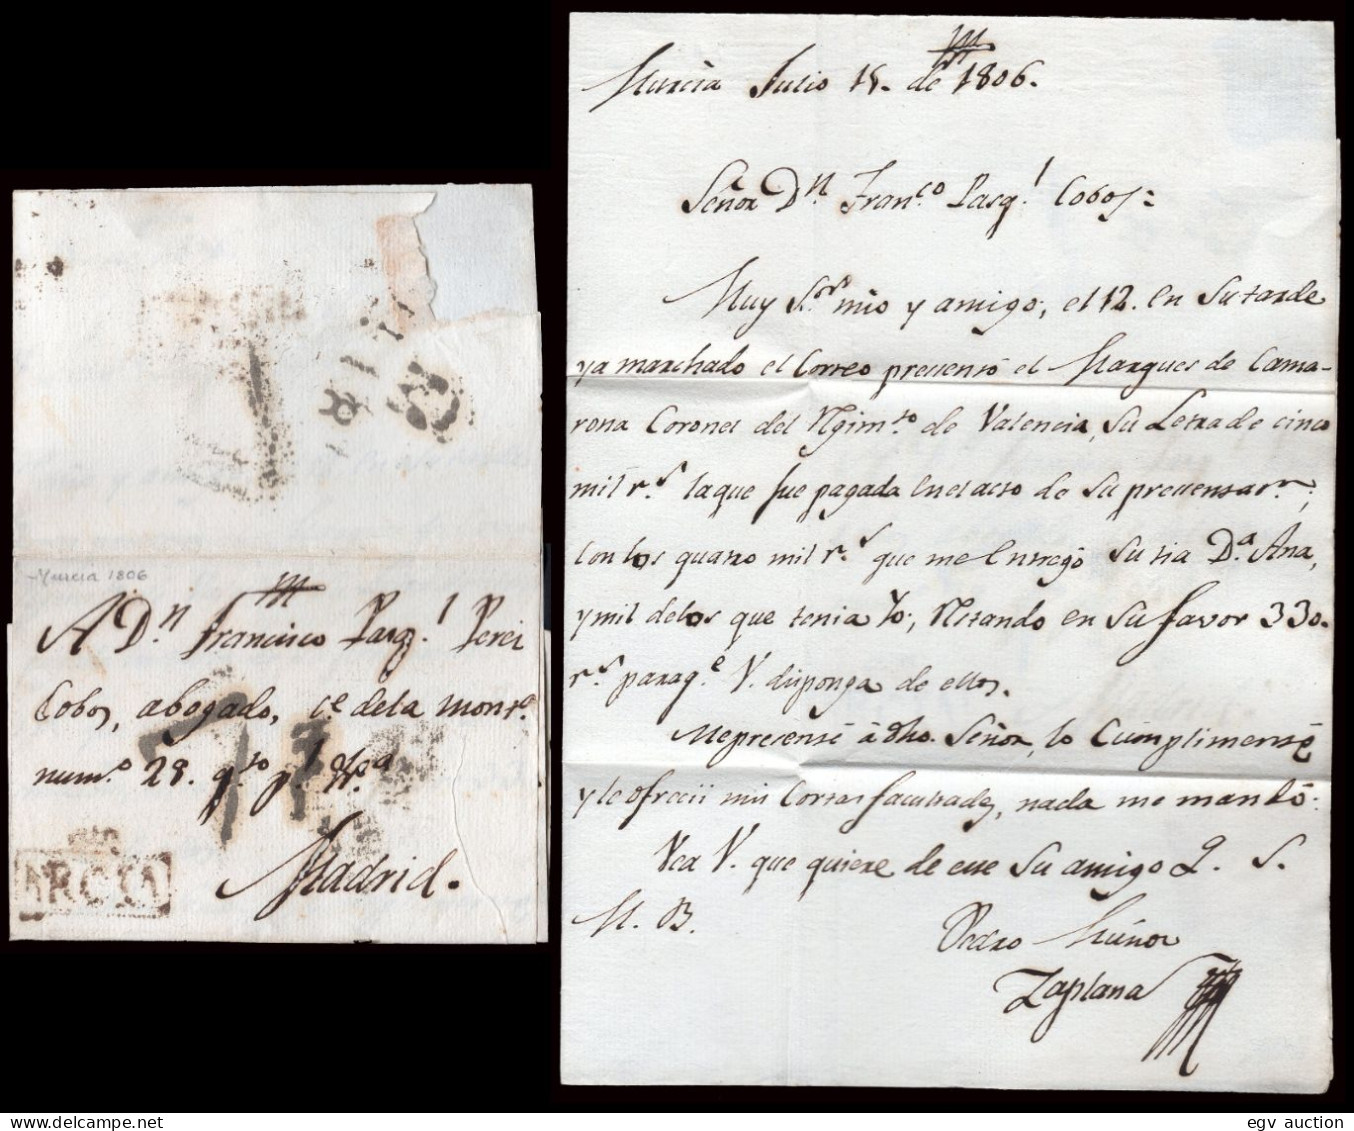 Murcia 1806
A Dn. Francisco Pasql. Perez
Cobos, abogado, ce. dela mont.
num.o 28. qto pl.
Madrid.
Murcia Julio 15. de 1806.
Señor Dn. Fran.co Pasql. Cobos:
Muy Sor. mio y amigo; el 12. en su tarde
ya marchado el Correo presentó el Marques de Cama-
rona Coronel del Rgim.to de Valencia, su Letra de cinco
mil rs. laque fue pagada en el acto de su presentaon.,
con los quatro mil rs. que me entregó su tia Da. Ana,
y mil delos que tenia Yo; restando en su favor 330.
rs. paraqe. V. disponga de ellos.
Mepresenté à dho. Señor, lo Cumplimenté
y le ofreci mis Cortas facultades, nada me mandó:
Vea V. que quiere de este su amigo Q. S.
M. B.
Pedro Muñoz
Zaplana
egv auction